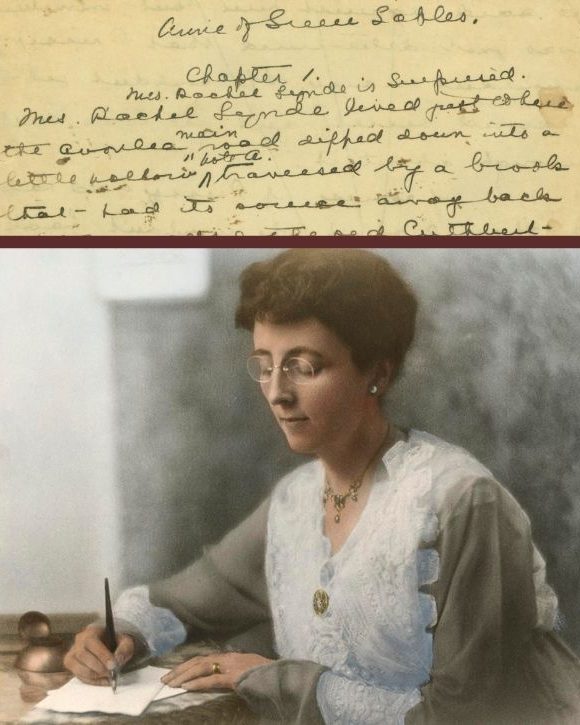 Anne of Green Gables.
Chapter 1.
Mrs. Rachel Lynde is Surprised.
Mrs. Rachel Lynde lived just where
the Avonlea main road dipped down into a
little hollow "Note A." traversed by a brook
that had its source away back
the old Cuthbert